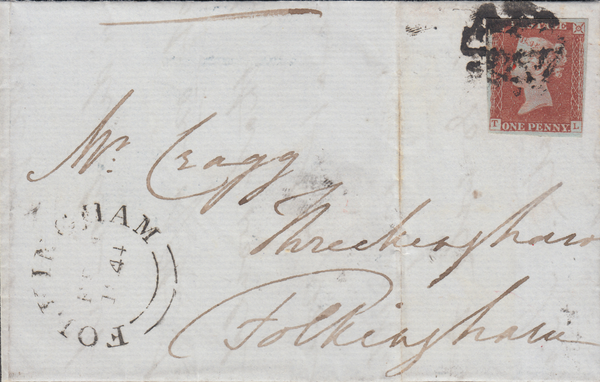 POSTAGE
T ONE PENNY L
Mr. Cragg
Threckingham
Folkingham
FOLKINGHAM